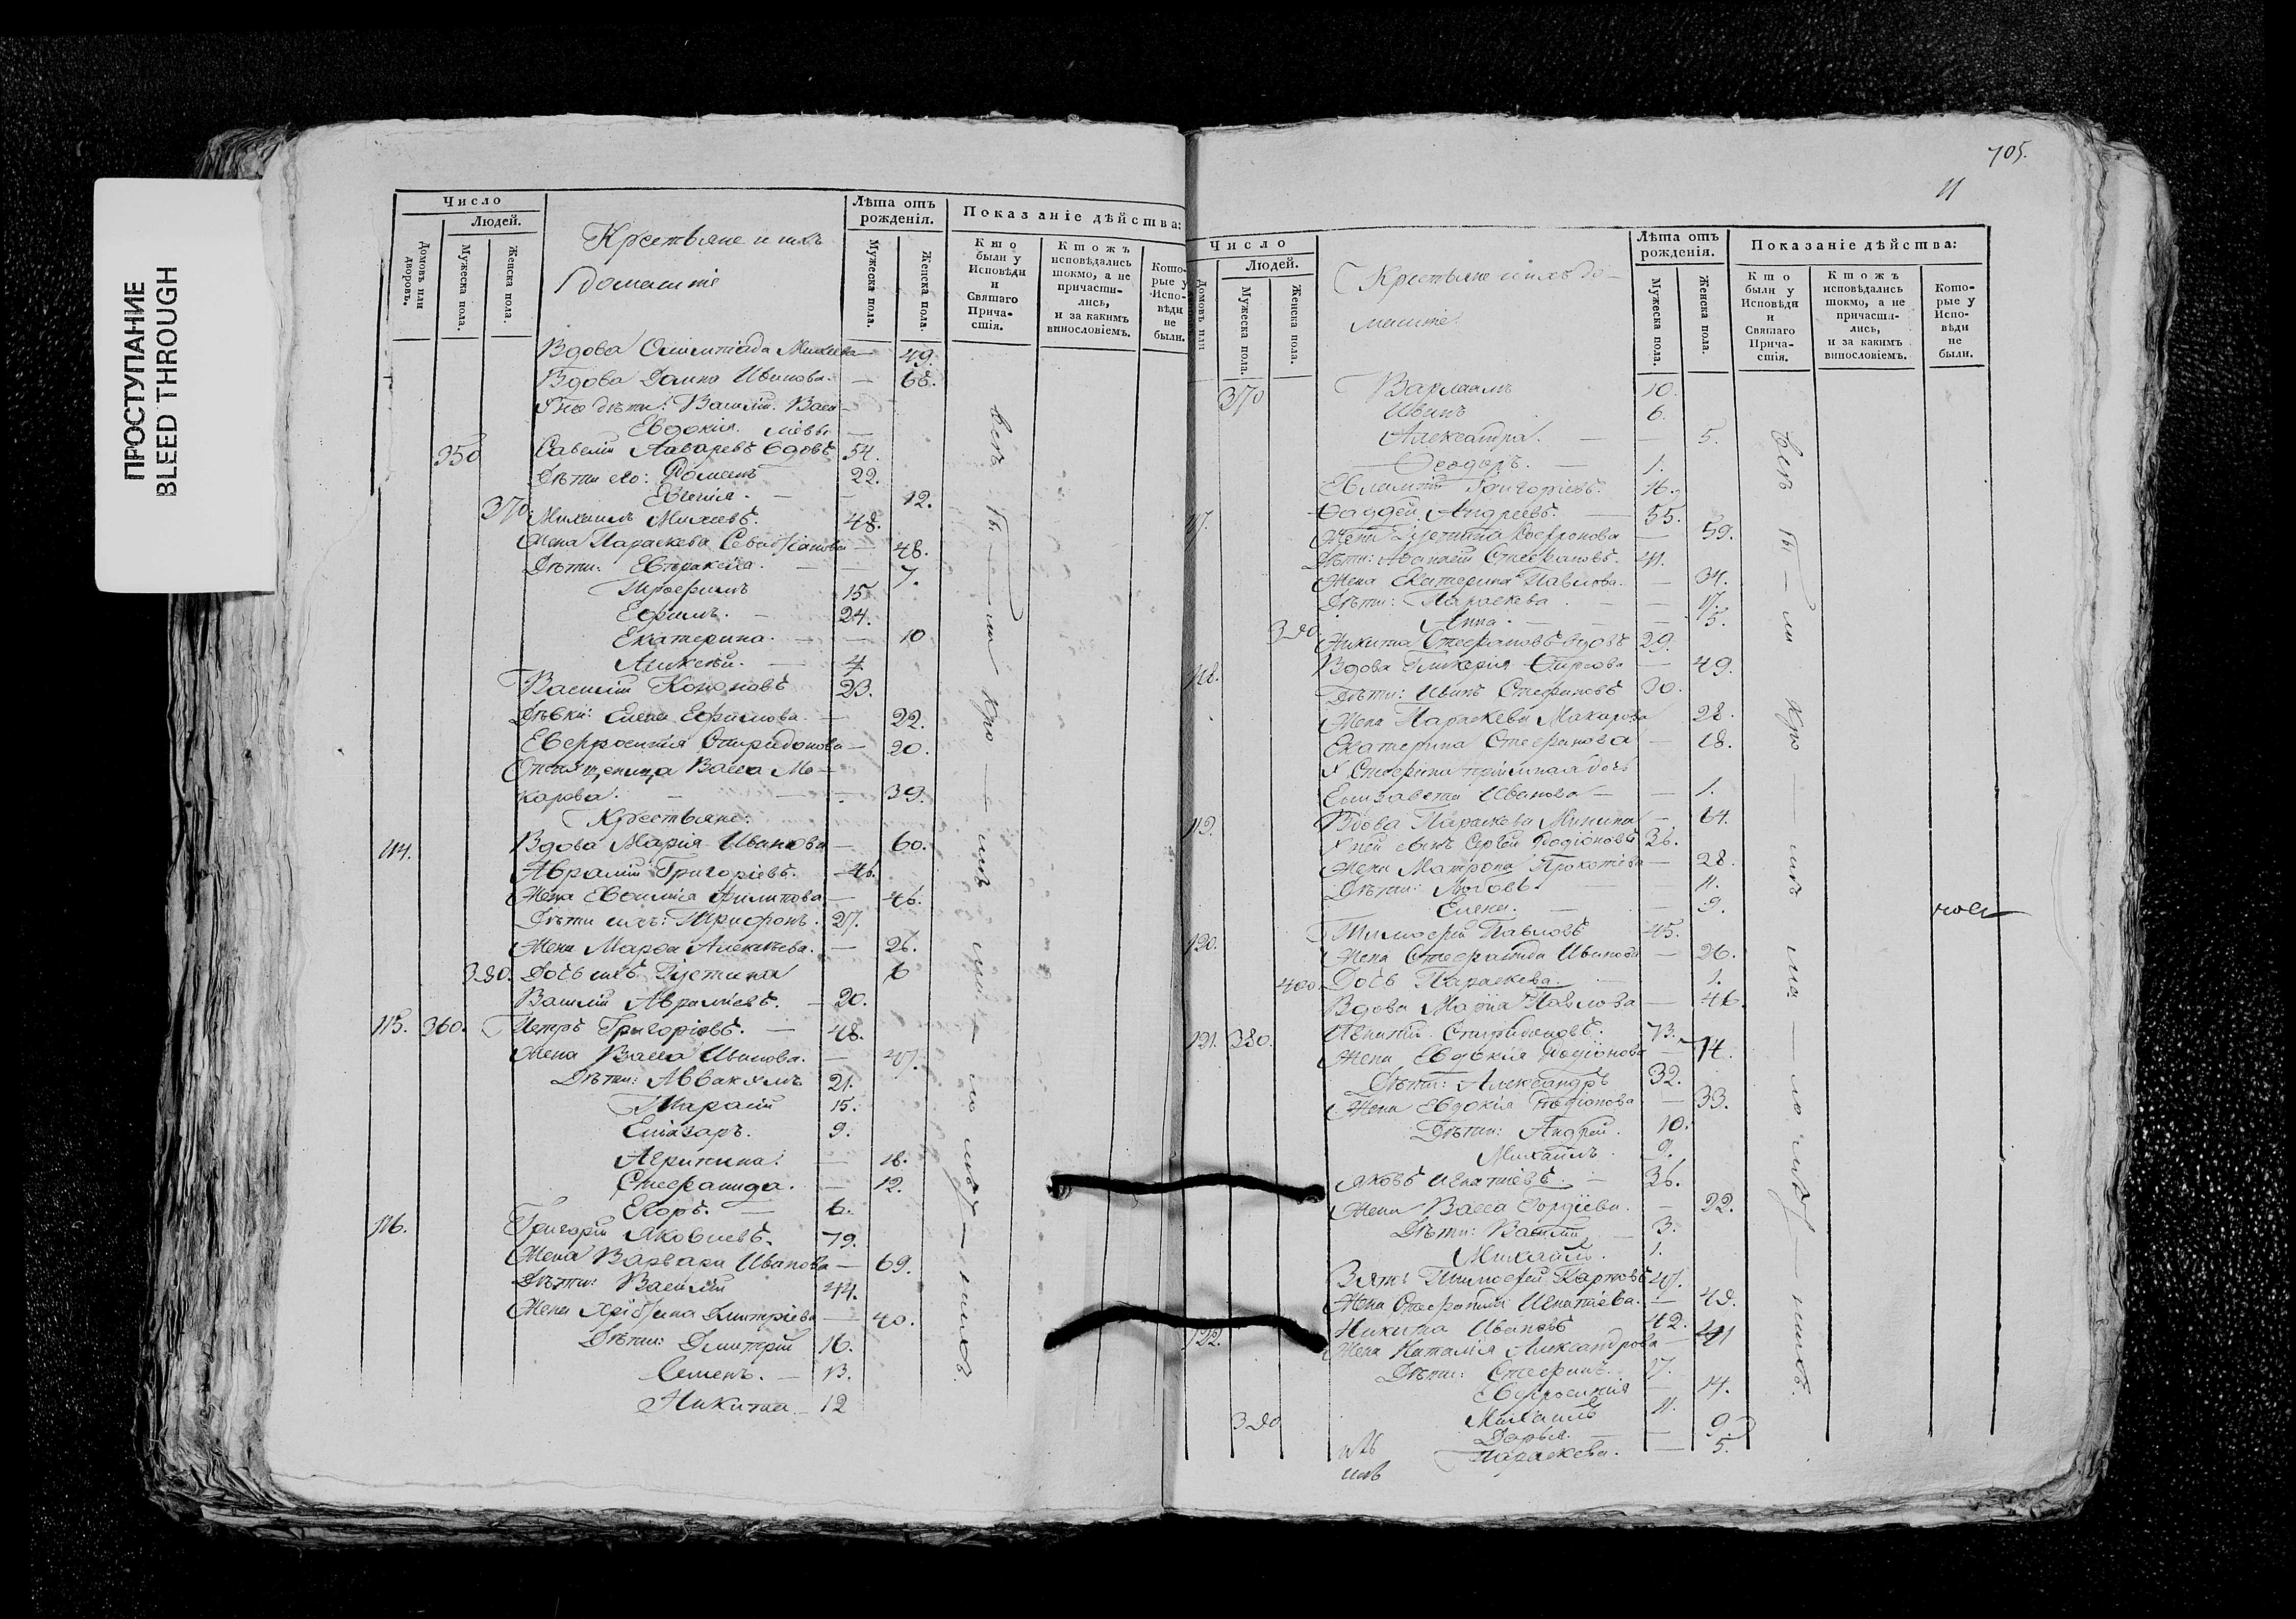 ПРОСТУПАНИЕ
BLEED THROUGH
Число
Людей.
Домовъ или дворовъ.
Мужеска пола.
Женска пола.
Крестьяне и ихъ
домашніе
Лѣта отъ рожденія.
Мужеска пола.
Женска пола.
Показаніе дѣйства:
Кто были у Исповѣди и Святаго Причастія.
Ктожъ исповѣдались токмо, а не причастились, и за какимъ винословіемъ.
Которые у Исповѣди не были.
Вдова Олимпіада Михеева — 49.
Вдова Домна Иванова. — 68.
дѣти: Василій. Васи-
Евдокия. льевы —
350 Савелій Лазаревъ вдовъ 54.
Дѣти его: Романъ 22.
Евгенія. — 12.
370 Михаилъ Михеевъ. 48.
Жена Параскева Севастіанова — 48.
Дѣти: Евпраксиа. — 7.
Трофимъ 15.
Ефимъ. — 24.
Екатерина. — 10
Алексѣй. — 4
Василій Кононовъ 23.
Дѣвки: Елена Ефимова. — 22.
Евфросинія Спиридонова — 20.
Васса Ма-
карова. — 39.
Крестьяне:
114. Вдова Марія Иванова — 60.
Аврамій Григоріевъ. 46.
Жена Евфимія Филипова — 46.
Дѣти ихъ: Трифонъ. 27.
Жена Марфа Алексѣева. — 26.
380. Дочь ихъ Іустина 6
Василій Авраміевъ. — 20.
115. 360. Петръ Григоріевъ. — 48.
Жена Васса Иванова. — 47.
Дѣти: Аввакумъ 21.
Тарасій 15.
Елиазаръ. 9.
Агрипина. — 18.
Стефанида. — 12.
Егоръ. — 6.
116. Григорій Яковлевъ. 79.
Жена Варвара Иванова — 69.
Дѣти: Василій 44.
Жена Христина Дмитріева — 40.
Дѣти: Дмитрій 16.
Семенъ. — 13.
Никита — 12
705.
11
Число
Людей.
Домовъ или
Мужеска пола.
Женска пола.
Крестьяне и ихъ до-
машніе.
Лѣта отъ рожденія.
Мужеска пола.
Женска пола.
Показаніе дѣйства:
Кто были у Исповѣди и Святаго Причастія.
Ктожъ исповѣдались токмо, а не причастились, и за какимъ винословіемъ.
Которые у Исповѣди не были.
370 Варлаамъ 10.
Иванъ 6.
Александра. — 5.
Феодоръ. — 1.
Евлампій Григоріевъ. 16.
117. Фаддей Андреевъ. — 55.
Жена Іустина Софронова — 59.
Дѣти: Афанасій Стефановъ. 41.
Жена Екатерина Павлова. — 34.
Дѣти: Параскева. — 17.
Анна. — 5.
390 Никита Стефановъ вдовъ 29.
118. Вдова Гликерія — 49.
Дѣти: Иванъ Стефановъ 30.
Жена Параскева Макарова 28.
Екатерина Стефанова — 18.
У Стефана приемная дочь
Елизавета Иванова — 1.
119. Вдова Параскева Минина — 64.
У ней сынъ Сергей Родіоновъ 36.
Жена Матрона Прокопіева — 28.
Дѣти: Любовь. — 11.
Елена. — 9.
120. Тимофей Павловъ 45.
Жена Стефанида Иванова — 26.
400. Дочь Параскева. — 1.
Вдова Марія Павлова — 46.
121. 380. Игнатій Спиридоновъ. 73.
Жена Евдокия Родіонова — 74.
Дѣти: Александръ 32.
Жена Евдокія Родіонова — 33.
Дѣти: Андрей. 10.
Михаилъ. 9.
Яковъ Игнатіевъ. — 36.
Жена Васса Гордіева. — 22.
Дѣти: Василій 3.
Михаилъ. 1.
Зять Тимофей Карповъ 47.
Жена Стефанида Игнатіева. — 48.
122. Никита Ивановъ 42.
Жена Наталія Александрова — 41
Дѣти: Стефанъ. 17.
Евфросинія — 14.
Михаилъ 11.
390 Дарья. — 9.
Параскева. — 5.